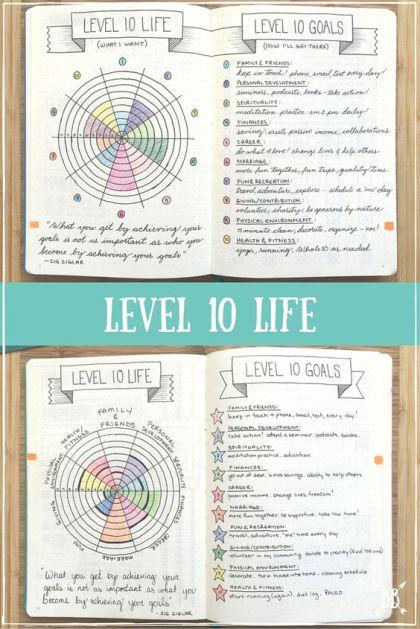 LEVEL 10 LIFE
(WHAT I WANT)
"What you get by achieving your
goals is not as important as who you
become by achieving your goals."
- ZIG ZIGLAR
LEVEL 10 GOALS
(HOW I'LL GET THERE)
FAMILY & FRIENDS:
keep in touch! phone, email, text every day!
PERSONAL DEVELOPMENT:
seminars, podcasts, books - take action!
SPIRITUALITY:
meditation practice am & pm daily!
FINANCES:
saving! create passive income, collaborations
CAREER:
do what I love! change lives & help others
MARRIAGE:
more fun together, fun trips, quality time
FUN & RECREATION:
travel, adventure, explore - schedule a "me" day
GIVING/CONTRIBUTION:
volunteer, charity, be generous by nature
PHYSICAL ENVIRONMENT:
15 minute clean, decorate, organize
HEALTH & FITNESS:
yoga, running, Whole30 as needed
LEVEL 10 LIFE
LEVEL 10 LIFE
FAMILY & FRIENDS
PERSONAL DEVELOPMENT
SPIRITUALITY
FINANCES
CAREER
MARRIAGE
FUN
GIVING
PHYSICAL ENVIRONMENT
HEALTH/FITNESS
"What you get by achieving your
goals is not as important as what you
become by achieving your goals"
- ZIG ZIGLAR
LEVEL 10 GOALS
FAMILY & FRIENDS:
keep in touch via phone, email, text, every day!
PERSONAL DEVELOPMENT:
take action! attend a seminar, podcasts, books
SPIRITUALITY:
meditation practice, education
FINANCES:
get out of debt, savings, ability to help others
CAREER:
passive income, change lives, freedom!
MARRIAGE:
more fun together, be supportive, take the time!
FUN & RECREATION:
travel, adventure, "me" time every day
GIVING/CONTRIBUTION:
volunteer in my community, donate to charity
PHYSICAL ENVIRONMENT:
decorate, turn house into home, cleaning schedule
HEALTH & FITNESS:
start running (again), diet log, PALEO
BB